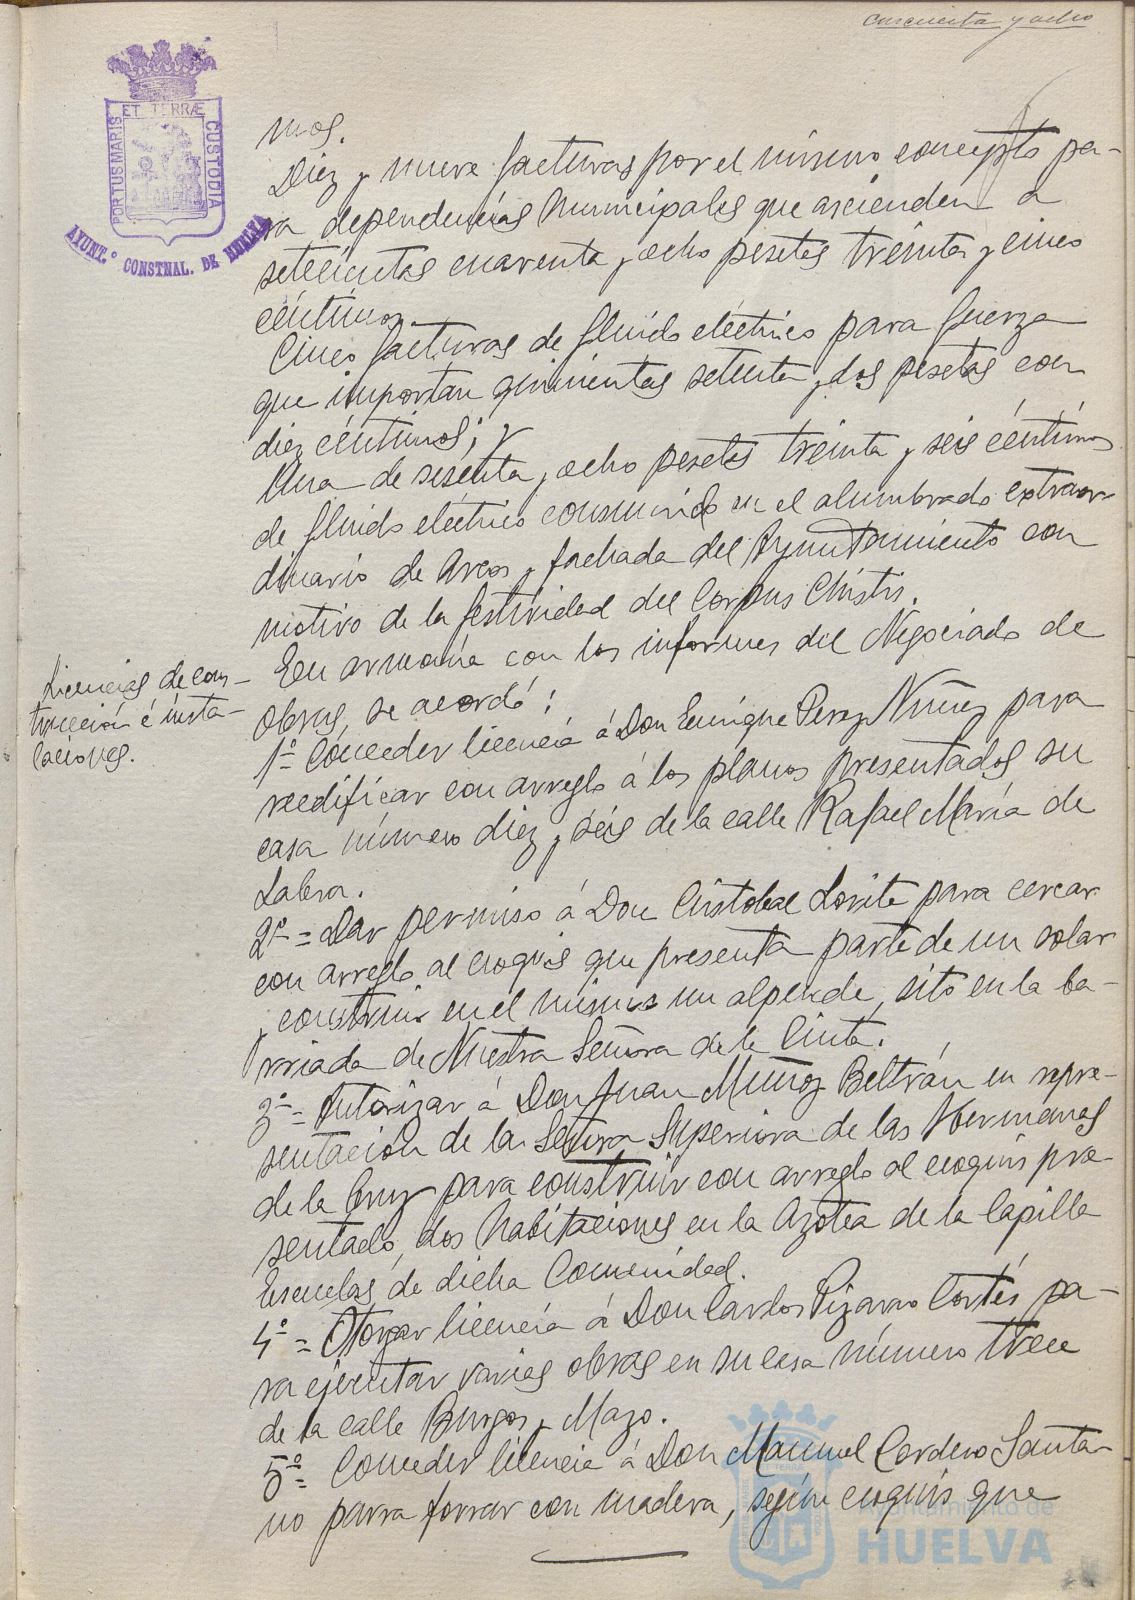 cincuenta y ocho
PORTUS MARIS ET TERRÆ CUSTODIA
AYUNT.º CONSTNAL. DE HUELVA
mos.
Diez y nueve facturas por el mismo concepto pa-
ra dependencias Municipales que ascienden a
setecientas cuarenta y ocho pesetas treinta y cinco
céntimos.
Cinco facturas de fluido eléctrico para fuerza
que importan quinientas setenta y dos pesetas con
diez céntimos; y
Una de sesenta y ocho pesetas treinta y seis céntimos
de fluido eléctrico consumido en el alumbrado extraor-
dinario de Arcos y fachada del Ayuntamiento con
motivo de la festividad del Corpus Christis.
Licencias de cons-
trucción é insta-
laciones.
En armonía con los informes del Negociado de
Obras, se acordó:
1º= Conceder licencia á Don Enrique Perez Nuñez para
reedificar con arreglo á los planos presentados su
casa número diez y seis de la calle Rafael María de
Labra.
2º= Dar permiso á Don Cristobal Lorite para cercar
con arreglo al croquis que presenta parte de un solar
y construir en el mismo un alpende, sito en la ba-
rriada de Nuestra Señora de la Cinta.
3º= Autorizar á Don Juan Muñoz Beltrán en repre-
sentación de la Señora Superiora de las Hermanas
de la Cruz para construir con arreglo al croquis pre-
sentado, dos habitaciones en la Azotea de la Capilla
Escuelas de dicha Comunidad.
4º= Otorgar licencia á Don Carlos Pizarro Cortés pa-
ra ejecutar varias obras en su casa número trece
de la calle Burgos y Mazo.
5º= Conceder licencia á Don Manuel Cordero Santa-
no parra forrar con madera, según croquis que
Ayuntamiento de
HUELVA